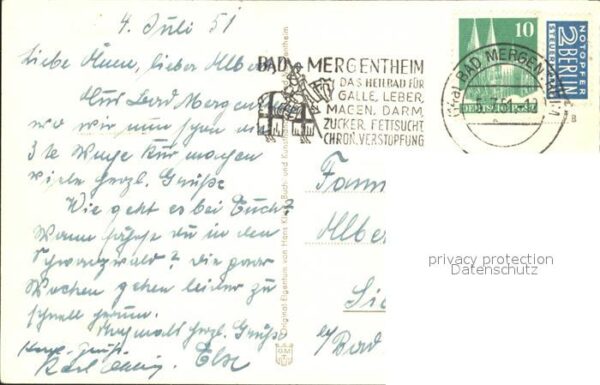 4. Juli 51
Liebe Änne, lieber Albert
Aus Bad Mergentheim
wo wir nun schon die
3te Woche Kur machen
viele herzl. Grüße
Wie geht es bei Euch?
Wann fährst du in den
Schwarzwald? Die paar
Wochen gehen leider zu
schnell herum.
Nochmals herzl. Grüße
Else
Karl
BAD MERGENTHEIM
DAS HEILBAD FÜR
GALLE, LEBER,
MAGEN, DARM,
ZUCKER, FETTSUCHT,
CHRON. VERSTOPFUNG
10
DEUTSCHE POST
NOTOPFER
2 BERLIN
STEUERMARKE
BAD MERGENTHEIM
Original Eigentum von Hans Kling, Buch- und Kunst
Albe
Sie
b/Bad
privacy protection
Datenschutz